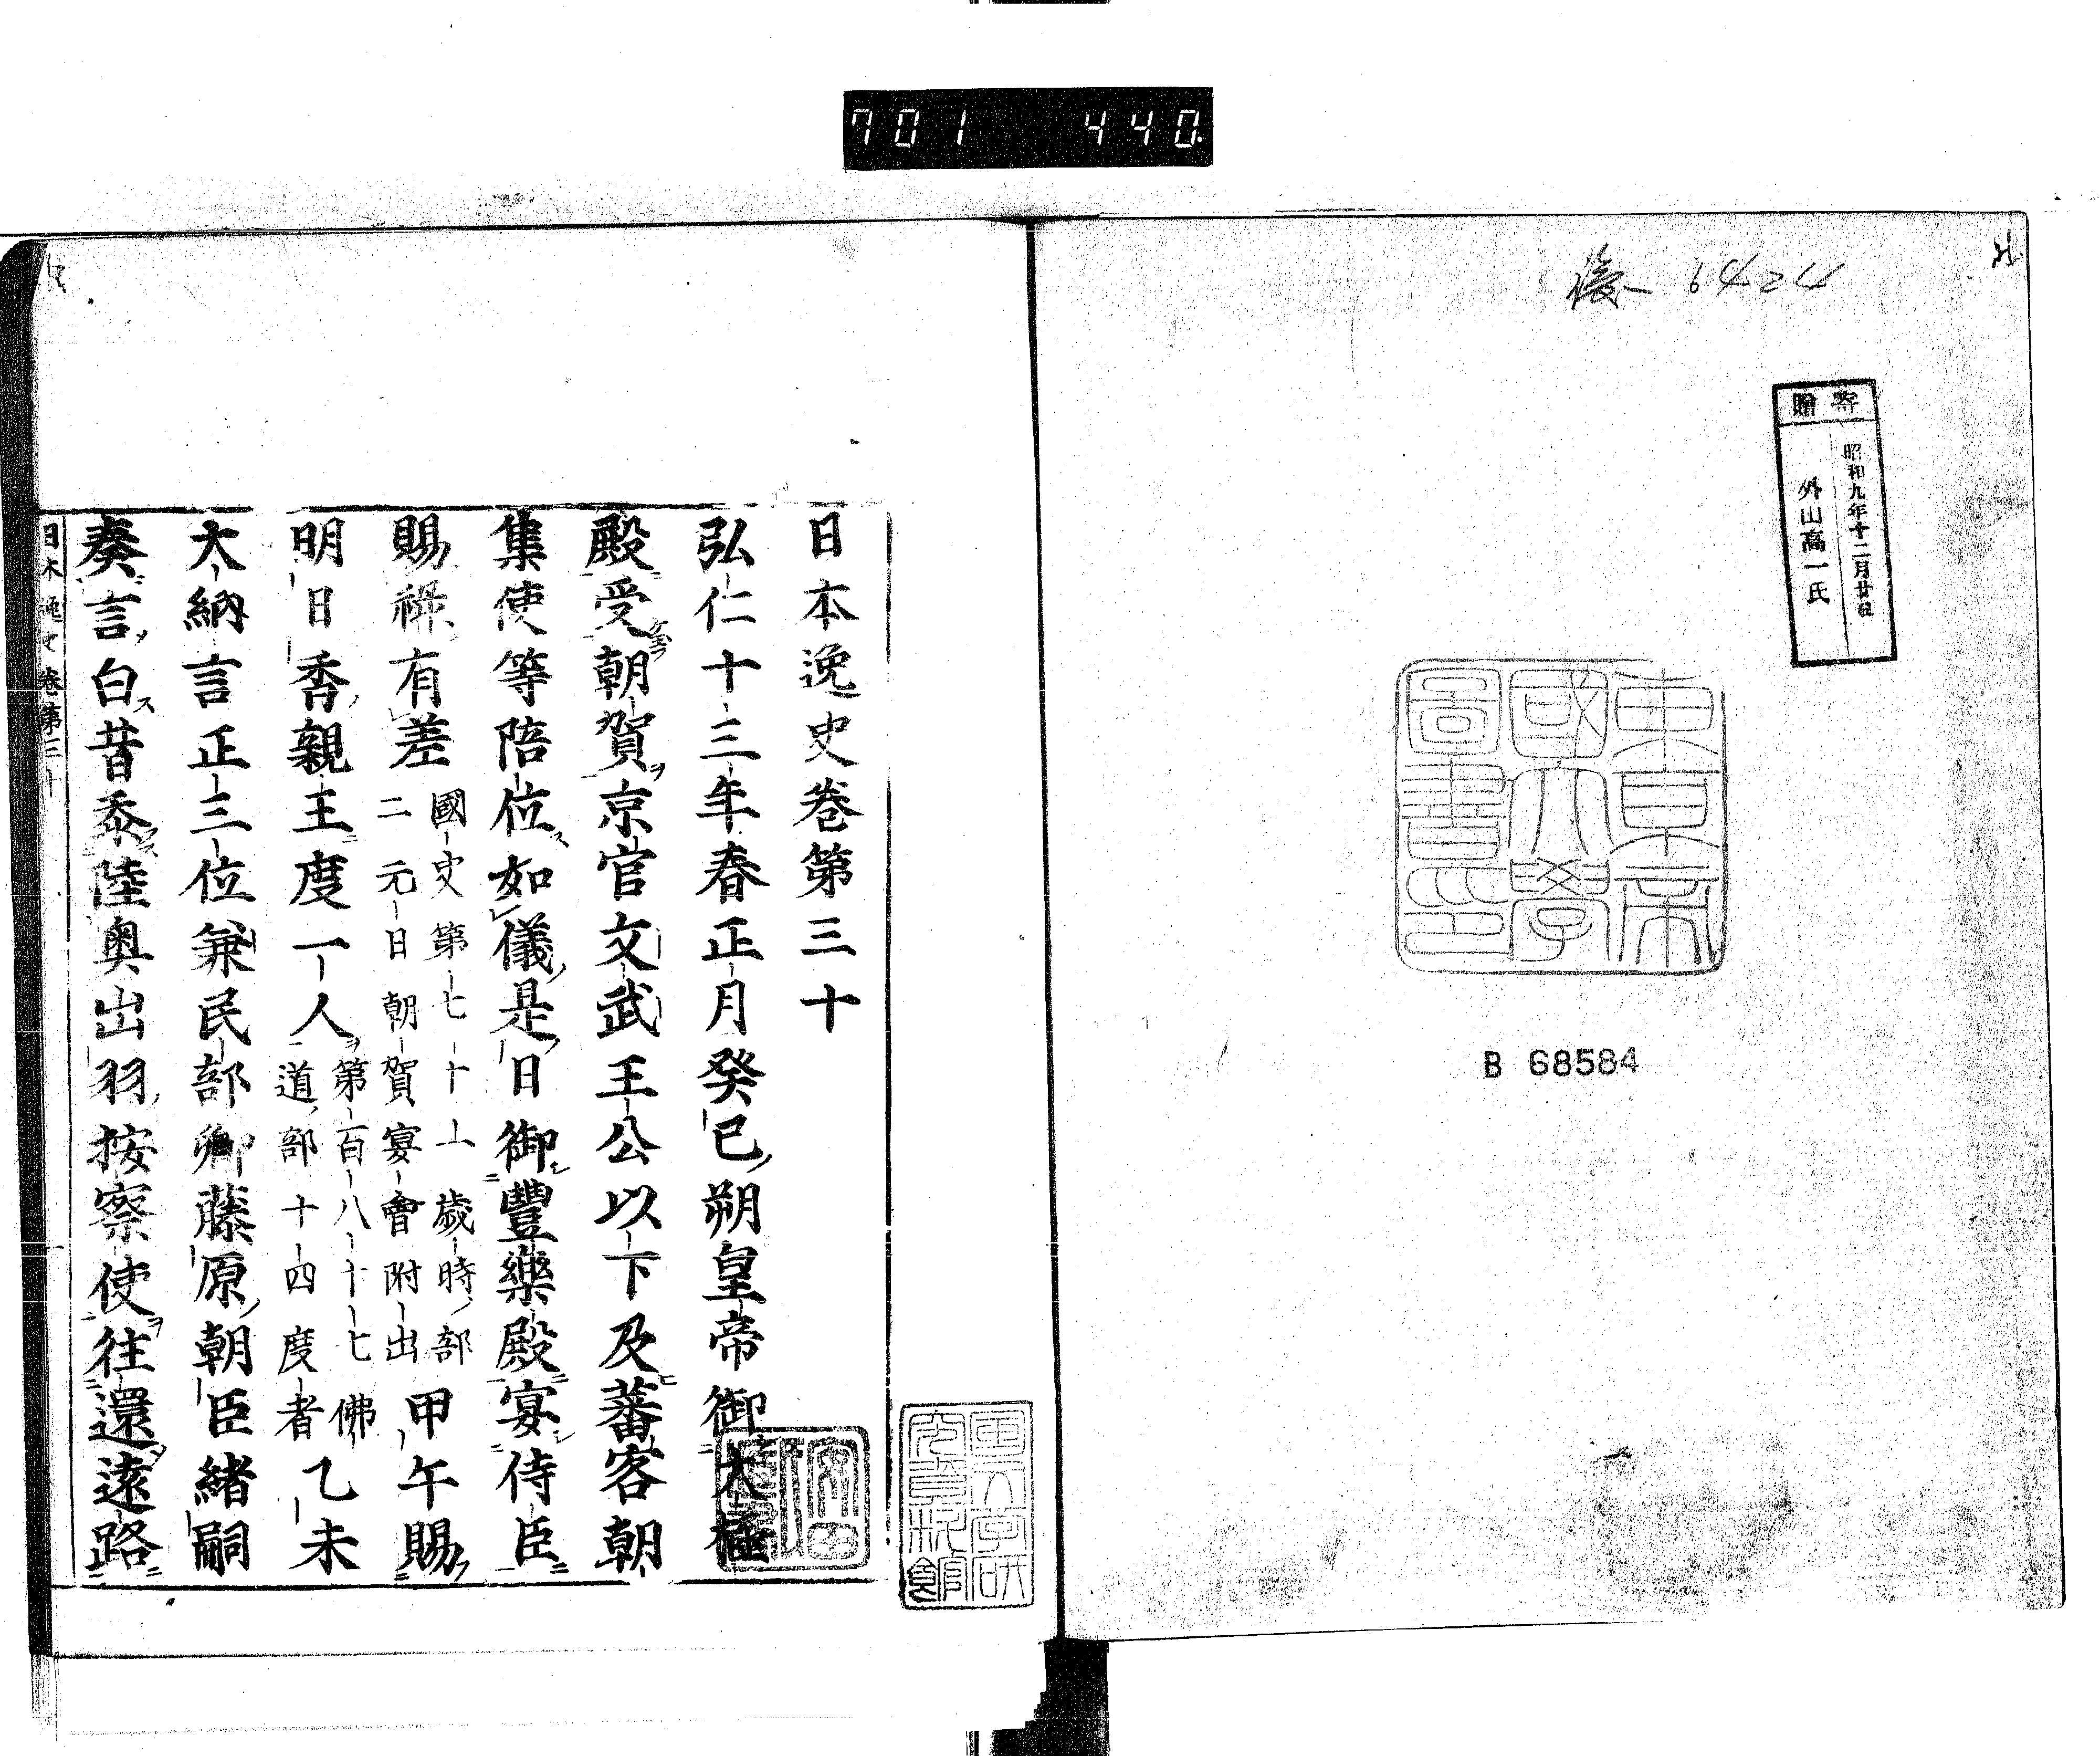 701 440
後 6424
寄贈
昭和九年十二月廿
外山高一氏
東京帝
國大學
圖書印
B 68584
日本逸史卷第三十
弘仁十三年春正月癸巳朔皇帝御大極
殿受朝賀京官文武王公以下及蕃客朝
集使等陪位如儀是日御豐樂殿宴侍臣
賜祿有差
國史第七十一歲時部
二元日朝賀宴會附出
甲午賜
明日香親王度一人
第百八十七佛
道部十四度者
乙未
大納言正三位兼民部卿藤原朝臣緒嗣
奏言白昔忝陸奧出羽按察使往還遠路
日本逸史卷第三十